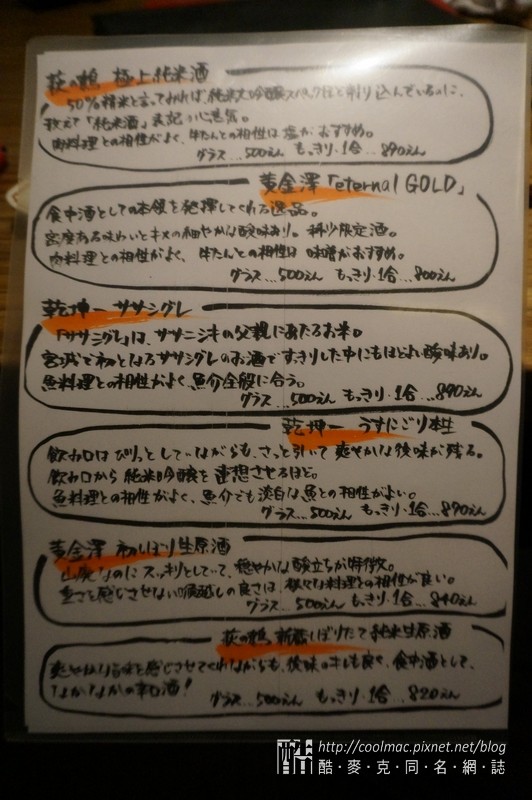 萩の鶴 極上純米酒
50%精米と言ってみれば、純米大吟醸スペックほど削り込んでいるのに、
敢えて「純米酒」表記の心意気。
肉料理との相性がよく、牛たんとの相性は塩がおすすめ。
グラス…500えん もっきり・1合…890えん
黄金澤「eternal GOLD」
食中酒としての本領を発揮してくれる逸品。
密度ある味わいとキメの細やかな酸味あり。稀少限定酒。
肉料理との相性がよく、牛たんとの相性は 味噌がおすすめ。
グラス…500えん もっきり・1合…800えん
乾坤一 ササシグレ
「ササシグレ」は、ササニシキの父親にあたるお米。
宮城で初となるササシグレのお酒ですっきりした中にもほどよい酸味あり。
魚料理との相性がよく、魚介全般に合う。
グラス…500えん もっきり・1合…890えん
乾坤一 うすにごり本生
飲み口はぴりっとしていながらも、さっと引いて爽やかな後味が残る。
飲み口から純米吟醸を連想させるほど。
魚料理との相性がよく、魚介でも淡白な魚との相性がよい。
グラス…500えん もっきり・1合…890えん
黄金澤 初しぼり生原酒
山廃なのにスッキリとしていて、穏やかな酸立ちが特徴。
重さを感じさせない喉越しの良さは、様々な料理との相性が良い。
グラス…500えん もっきり・1合…840えん
萩の鶴 新酒しぼりたて純米生原酒
爽やかな旨味を感じさせてくれながらも、後味のキレも良く、食中酒として、
なかなかの辛口酒!
グラス…500えん もっきり・1合…820えん
酷 http://coolmac.pixnet.net/blog
酷・麥・克・同・名・網・誌